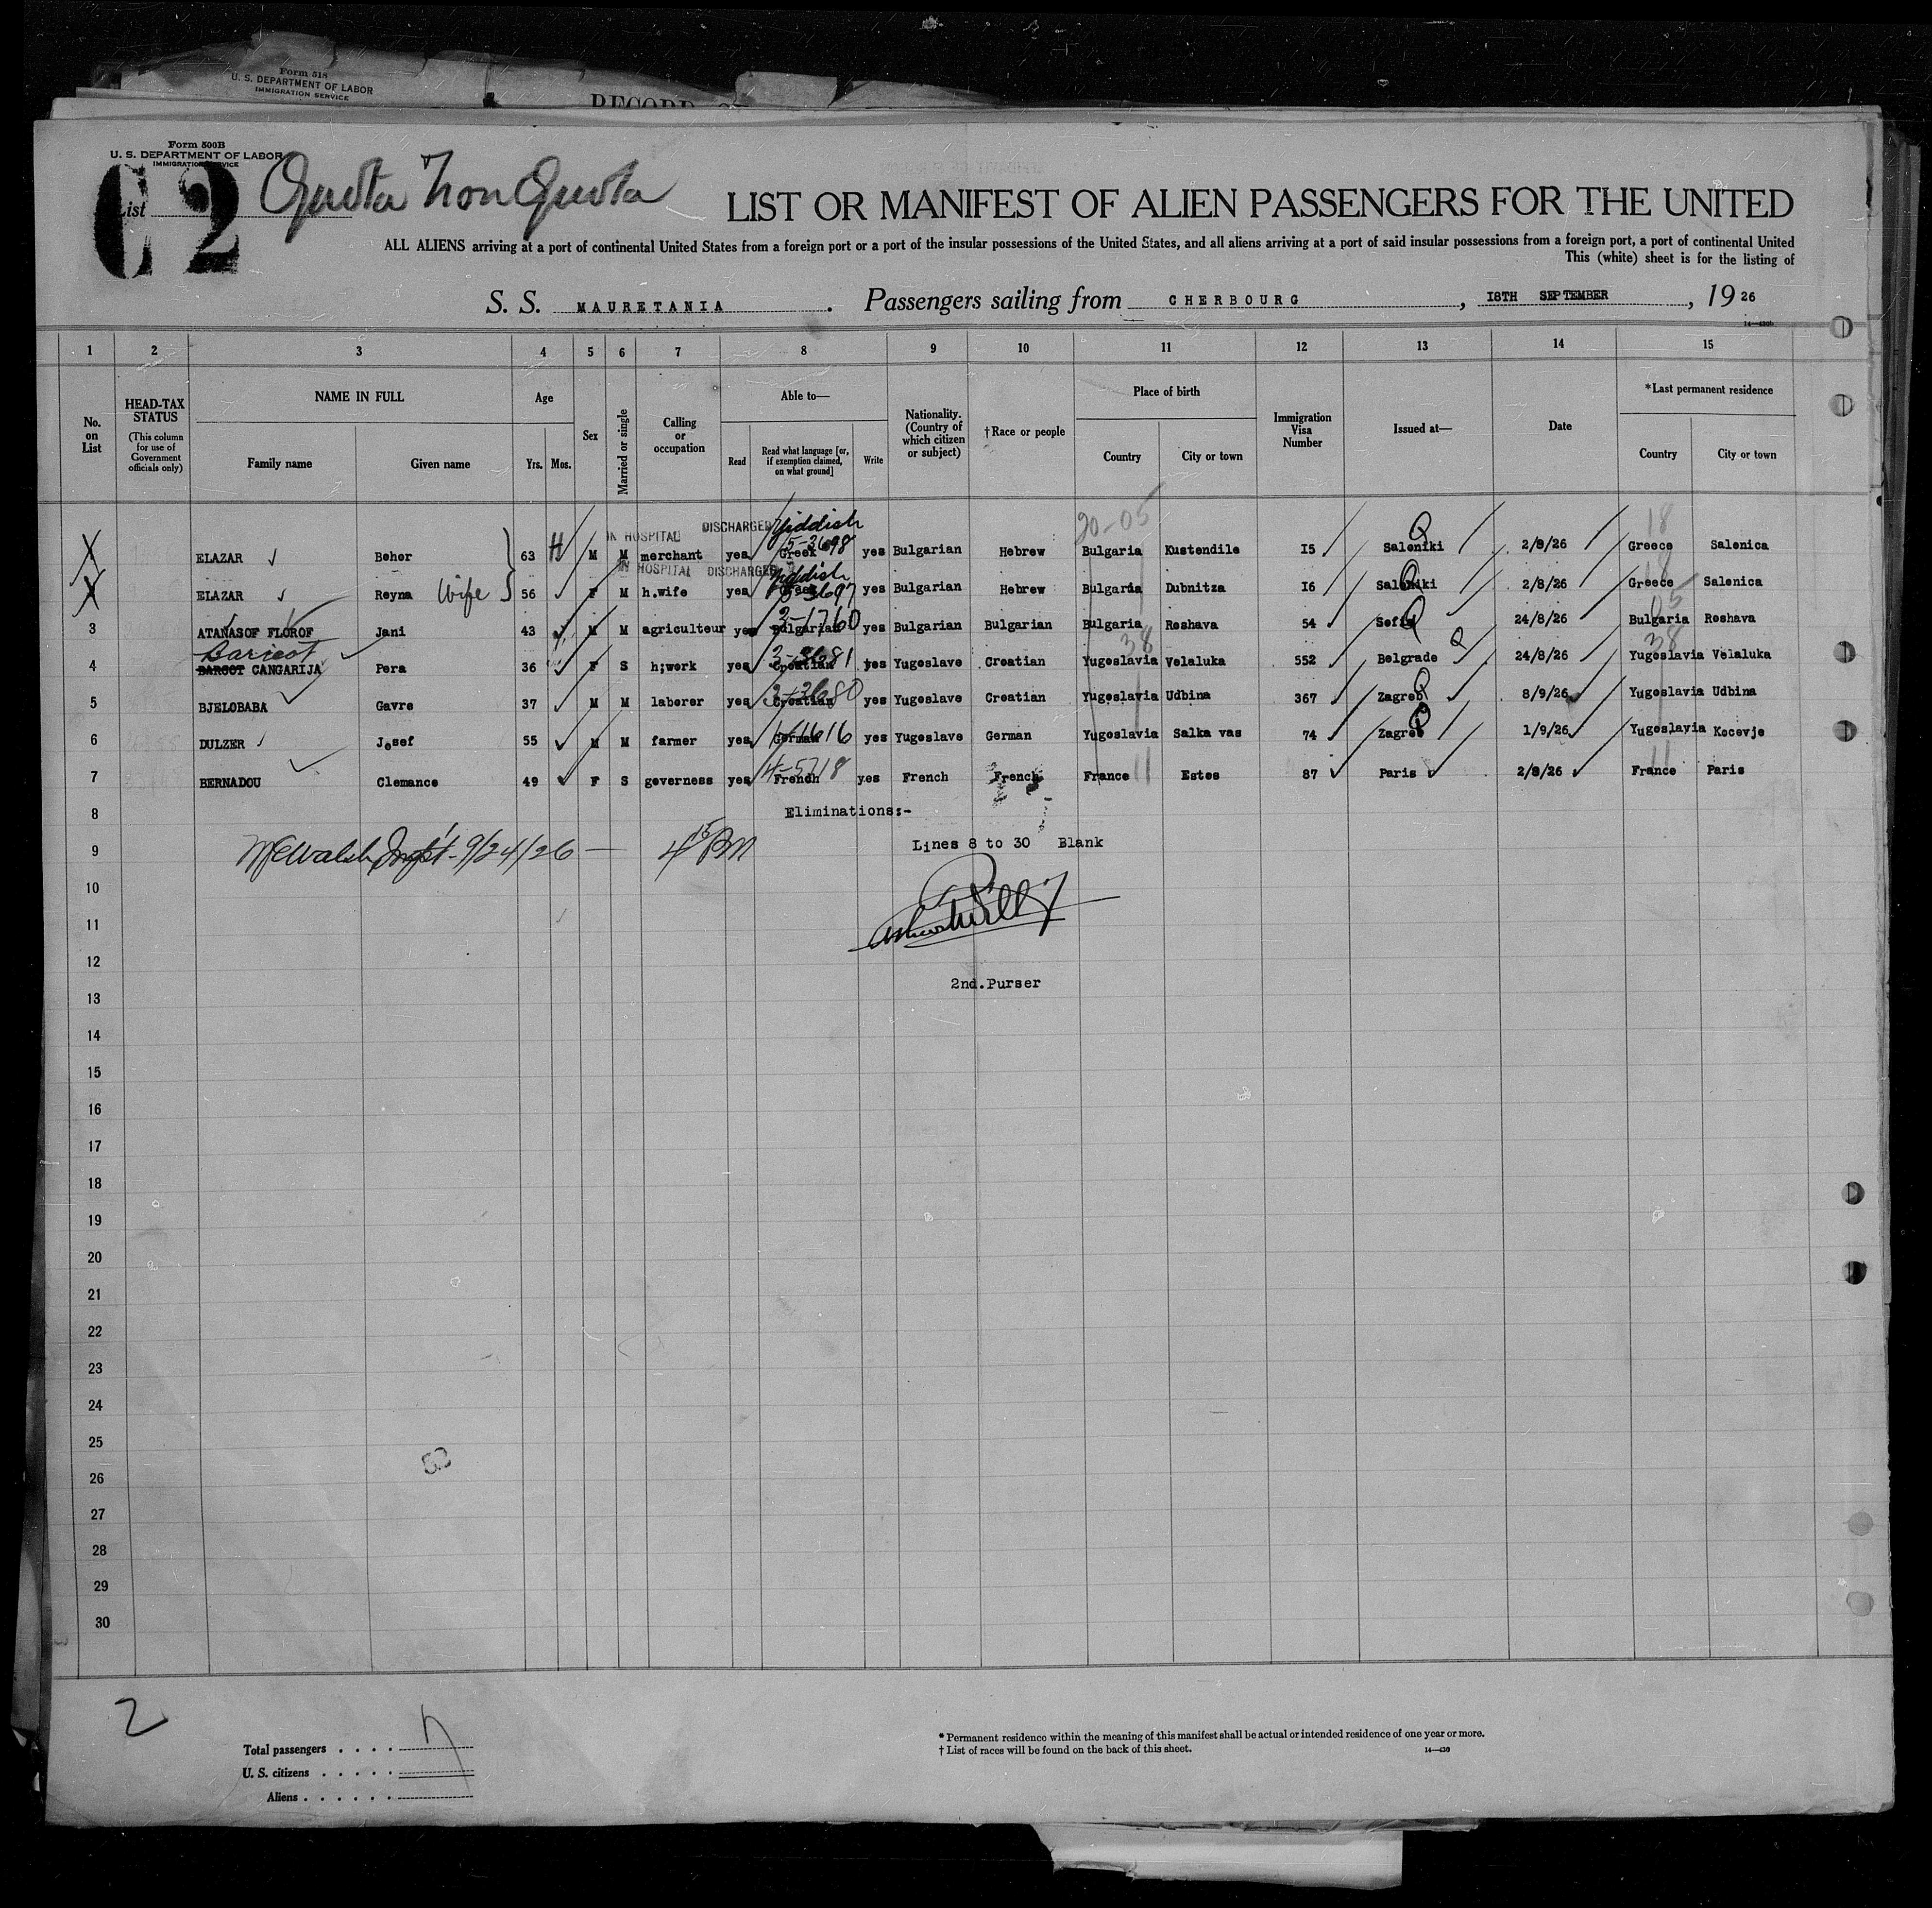 Form 518
U. S. DEPARTMENT OF LABOR
IMMIGRATION SERVICE
Form 500B
U. S. DEPARTMENT OF LABOR
IMMIGRATION SERVICE
List C 2 Quota Non Quota
LIST OR MANIFEST OF ALIEN PASSENGERS FOR THE UNITED
ALL ALIENS arriving at a port of continental United States from a foreign port or a port of the insular possessions of the United States, and all aliens arriving at a port of said insular possessions from a foreign port, a port of continental United
This (white) sheet is for the listing of
S. S. MAURETANIA. Passengers sailing from CHERBOURG, 18TH SEPTEMBER, 19 26
14—430b
1 2 3 4 5 6 7 8 9 10 11 12 13 14 15
No. on List
HEAD-TAX STATUS (This column for use of Government officials only)
NAME IN FULL Family name Given name
Age Yrs. Mos.
Sex
Married or single
Calling or occupation
Able to— Read Read what language [or, if exemption claimed, on what ground] Write
Nationality. (Country of which citizen or subject)
†Race or people
Place of birth Country City or town
Immigration Visa Number
Issued at—
Date
*Last permanent residence Country City or town
20-05 18
IN HOSPITAL DISCHARGED Yiddish 5-3698
ELAZAR Behor 63 H M M merchant yes Greek yes Bulgarian Hebrew Bulgaria Kustendile I5 Saloniki Q 2/8/26 Greece Salonica
IN HOSPITAL DISCHARGED Yiddish
ELAZAR Reyna Wife 56 F M h.wife yes Greek 3697 yes Bulgarian Hebrew Bulgaria Dubnitza I6 Saloniki Q 2/8/26 Greece Salonica
3 ATANASOF FLOROF Jani 43 M M agriculteur yes Bulgarian 3-1760 yes Bulgarian Bulgarian Bulgaria Roshava 54 Sofia Q 24/8/26 Bulgaria 05 Roshava
Baricot
4 BARCOT CANGARIJA Pera 36 F S h;work yes Croatian 3-3681 yes Yugoslave Croatian Yugoslavia 38 Velaluka 552 Belgrade Q 24/8/26 Yugoslavia 38 Velaluka
5 BJELOBABA Gavre 37 M M laborer yes Croatian 3-3680 yes Yugoslave Croatian Yugoslavia Udbina 367 Zagreb Q 8/9/26 Yugoslavia Udbina
6 DULZER Josef 55 M M farmer yes German 1-1616 yes Yugoslave German Yugoslavia Salka vas 74 Zagreb Q 1/9/26 Yugoslavia Kocevje
7 BERNADOU Clemance 49 F S governess yes French 4-5718 yes French French France 11 Estos 87 Paris 2/8/26 France 11 Paris
8 Eliminations:-
9 McWalsh Inspt- 9/24/26 — 4 15 PM Lines 8 to 30 Blank
10
11
12
2nd.Purser
13
14
15
16
17
18
19
20
21
22
23
24
25
26
27
28
29
30
2
Total passengers . . . . 7
U. S. citizens . . . . .
Aliens . . . . . .
* Permanent residence within the meaning of this manifest shall be actual or intended residence of one year or more.
† List of races will be found on the back of this sheet.
14—430